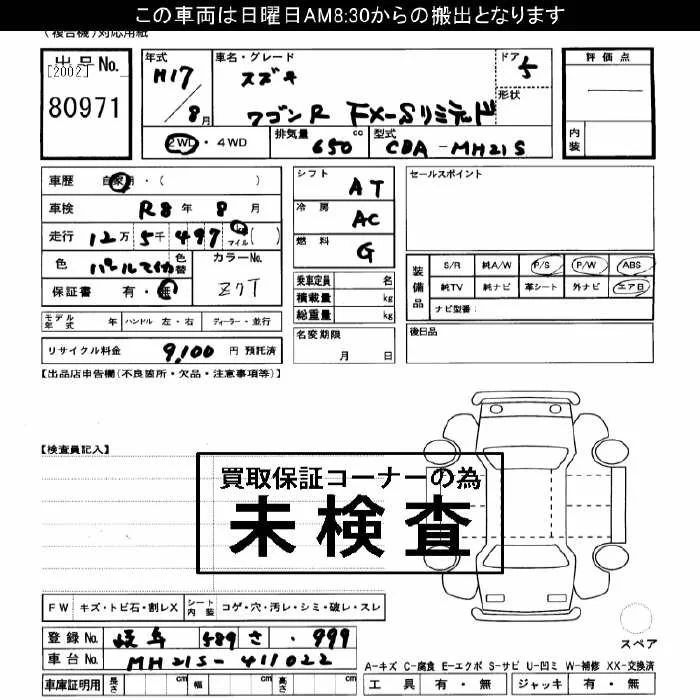 この車両は日曜日AM8:30からの搬出となります
(複合機)対応用紙
出品No.
[2002]
80971
年式 H17 / 8月
車名・グレード スズキ
ワゴンR FX-Sリミテッド
ドア 5
形状
2WD・4WD
排気量 650 cc
型式 CBA-MH21S
評価点
内装
車歴 自家用・( )
車検 R8年 8月
走行 12万 5千 497 km マイル ( )
色 パールマイカ 色替
カラーNo. Z7T
保証書 有・無
モデル年式 年 ハンドル 左・右 ディーラー・並行
リサイクル料金 9,100 円 預託済
シフト AT
冷房 AC
燃料 G
乗車定員 名
積載量 kg
総重量 kg
名変期限
月 日
セールスポイント
装備品
S/R 純A/W P/S P/W ABS
純TV 純ナビ 革シート 外ナビ エアB
ナビ型番:
後日品
【出品店申告欄(不良箇所・欠品・注意事項等)】
【検査員記入】
買取保証コーナーの為
未検査
FW キズ・トビ石・割レX シート内装 コゲ・穴・汚レ・シミ・破レ・スレ
登録No. 岐阜 589 さ ・999
車台No. MH21S-411022
車庫証明用 長さ cm 幅 cm 高さ cm
スペア
A-キズ C-腐食 E-エクボ S-サビ U-凹ミ W-補修 XX-交換済
工具 有・無 ジャッキ 有・無